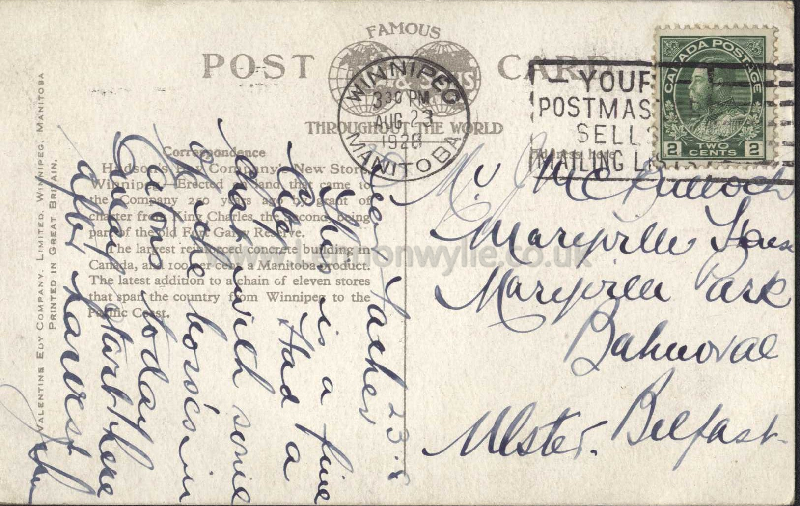 FAMOUS
POST CARD
THROUGHOUT THE WORLD
WINNIPEG
3 30 PM
AUG 23
1928
MANITOBA
YOUR
POSTMAS
SELLS
MAILING L
CANADA POSTAGE
2 TWO CENTS 2
VALENTINE EDY COMPANY, LIMITED, WINNIPEG, MANITOBA
PRINTED IN GREAT BRITAIN.
Correspondence
Hudson's Bay Company's New Store
Winnipeg. Erected on land that came to
the Company years ago by grant of
charter from King Charles, the Second, being
part of the old Fort Garry Reserve.
The largest reinforced concrete building in
Canada, and 100 per cent a Manitoba product.
The latest addition to a chain of eleven stores
that span the country from Winnipeg to the
Pacific Coast.
Address here
Mr J McCulloch
Maryville
Maryville Park
Balmoral
Ulster. Belfast
23.8
Dear Father
This is a fine
City. Had a
with some
of the in
Eatons today
start here
after harvest
John